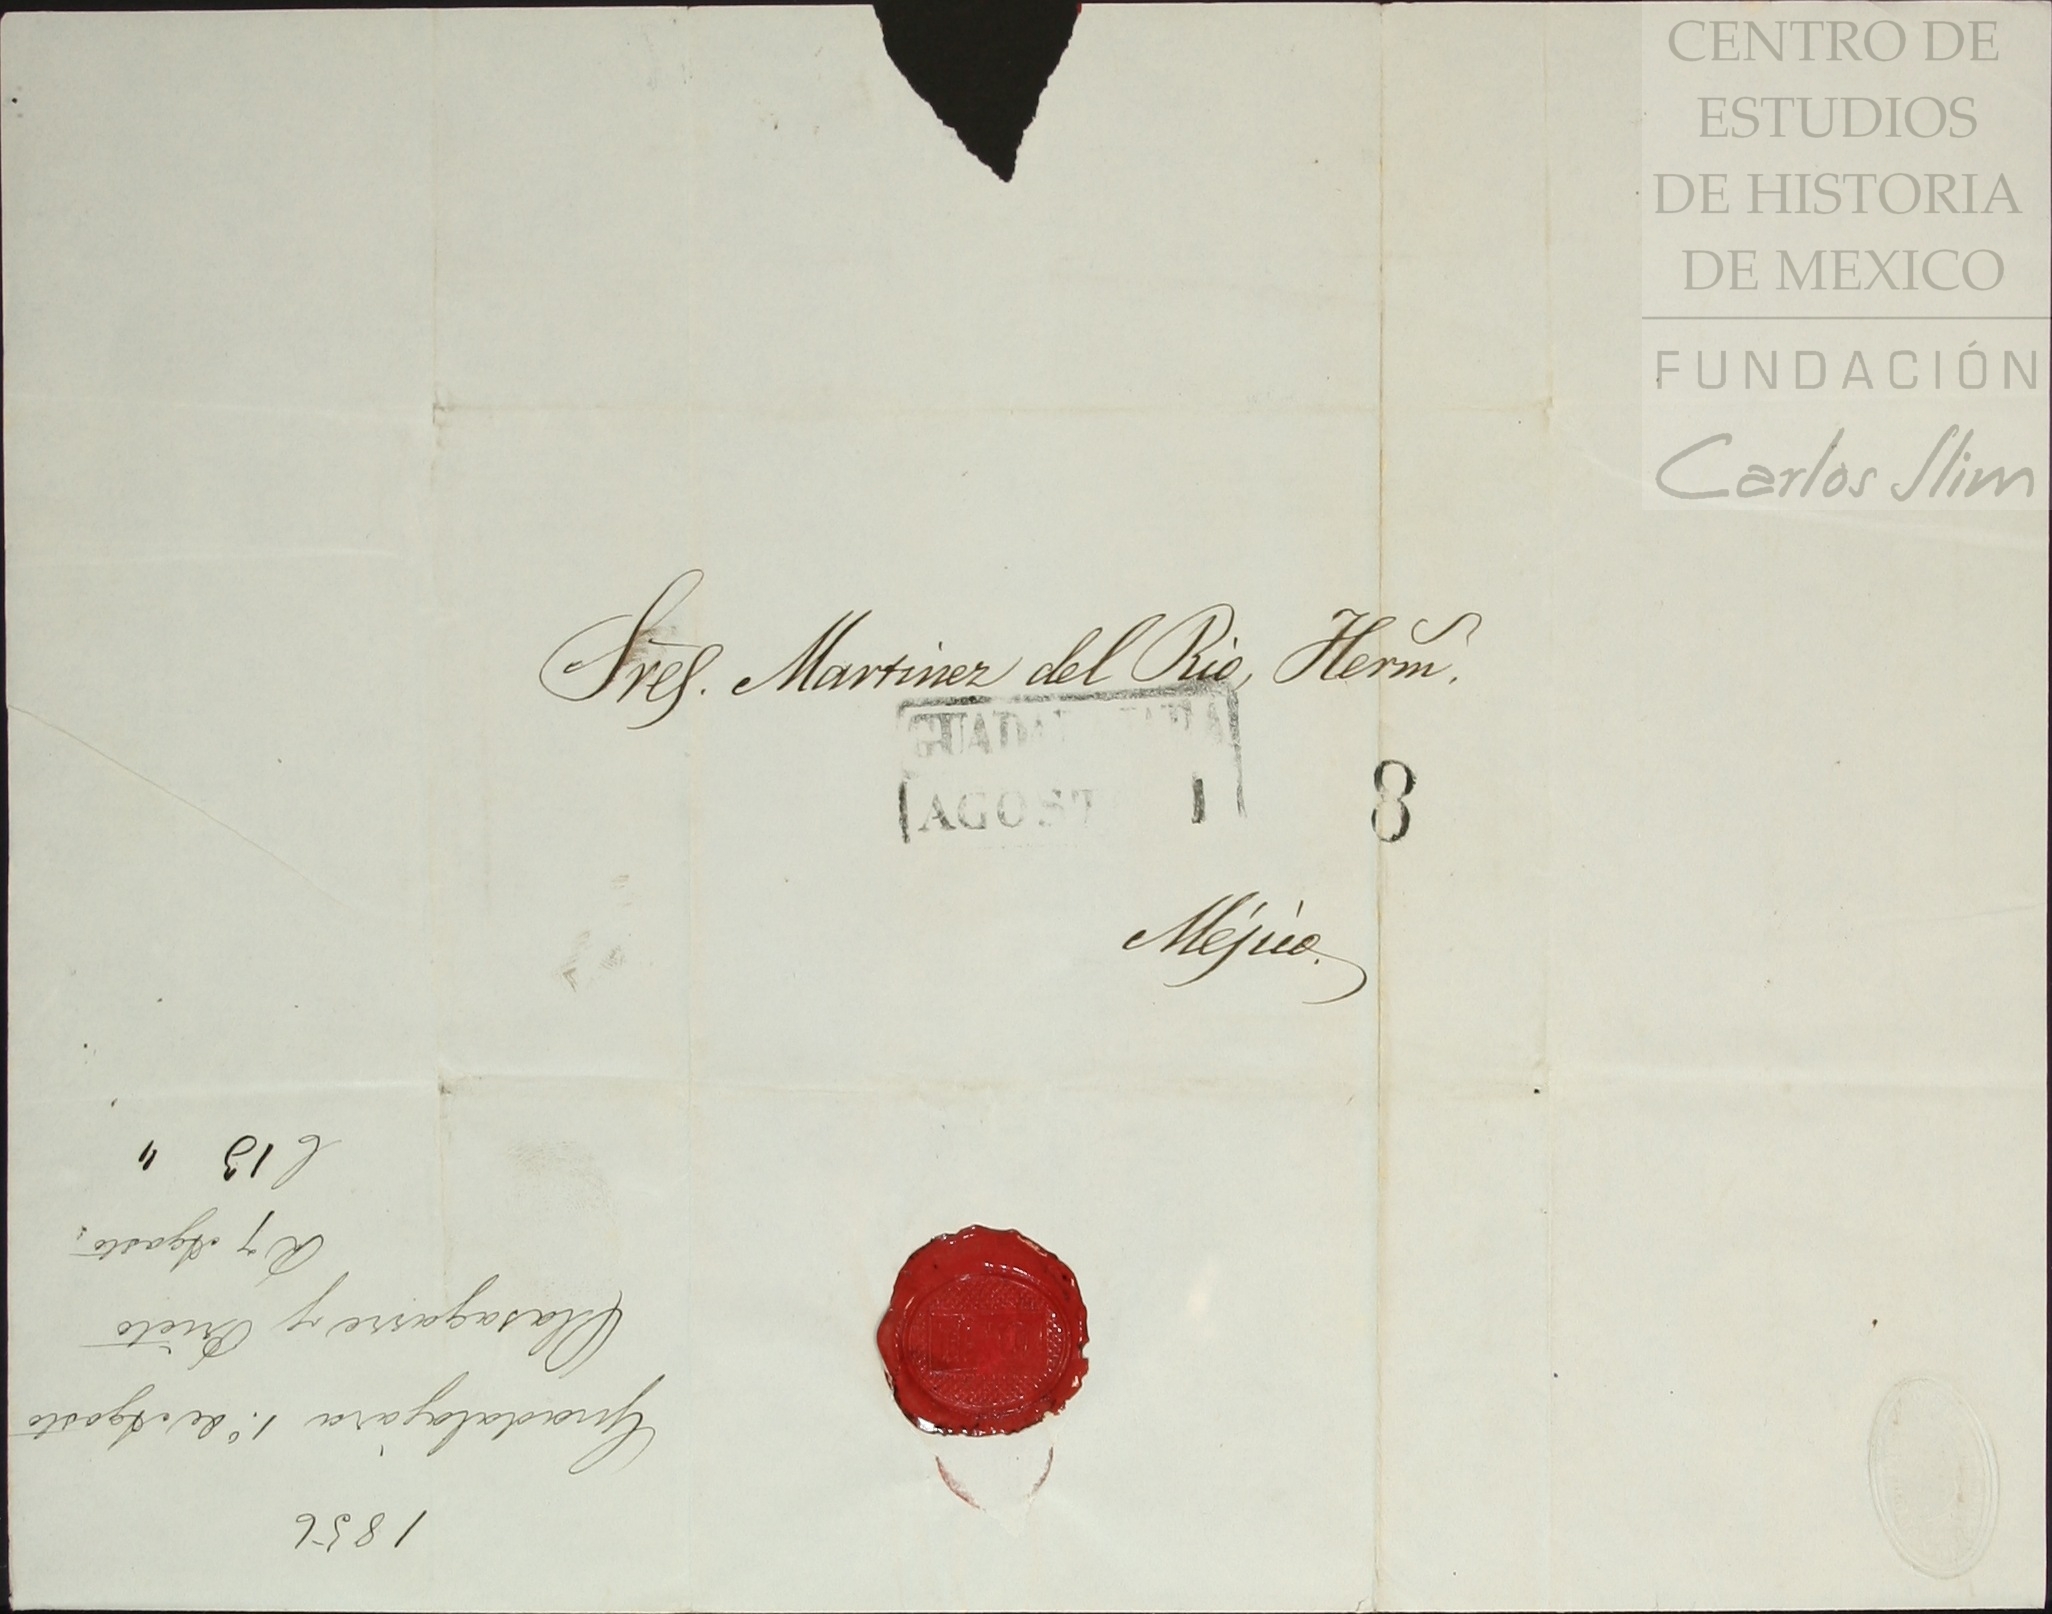 CENTRO DE
ESTUDIOS
DE HISTORIA
DE MEXICO
FUNDACIÓN
Carlos Slim
Sres. Martinez del Rio, Herm.
GUADALAJARA
AGOSTO 1
8
Méjico.
1856
Guadalajara 1º de Agosto
Olasagarre y Prieto
R 7 Agosto
C 13 "